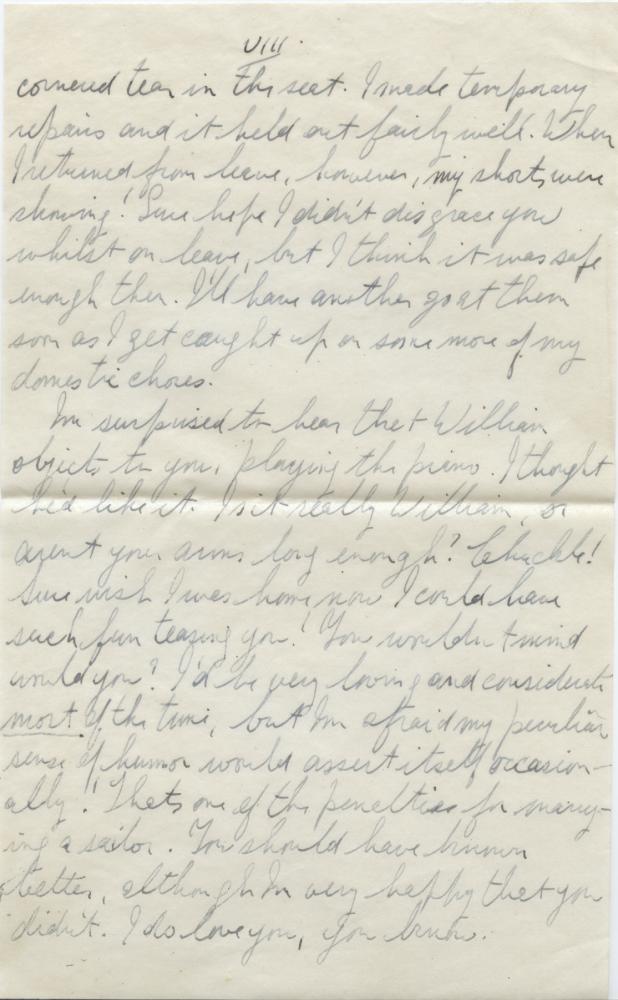 VIII.
cornered tear in the seat. I made temporary
repairs and it held out fairly well. When
I returned from leave, however, my shorts were
showing! Sure hope I didn't disgrace you
whilst on leave, but I think it was safe
enough then. I'll have another go at them
soon as I get caught up on some more of my
domestic chores.
Im surprised to hear that William
objects to your playing the piano. I thought
he'd like it. Is it really William, or
arent your arms long enough? Chuckle!
Sure wish I was home now I could have
such fun teasing you! You wouldn't mind
would you? I'd be very loving and considerate
most of the time, but Im afraid my peculiar
sense of humor would assert itself occasion-
ally! Thats one of the penalties for marry-
ing a sailor. You should have known
better, although Im very happy that you
didn't. I do love you, you know.